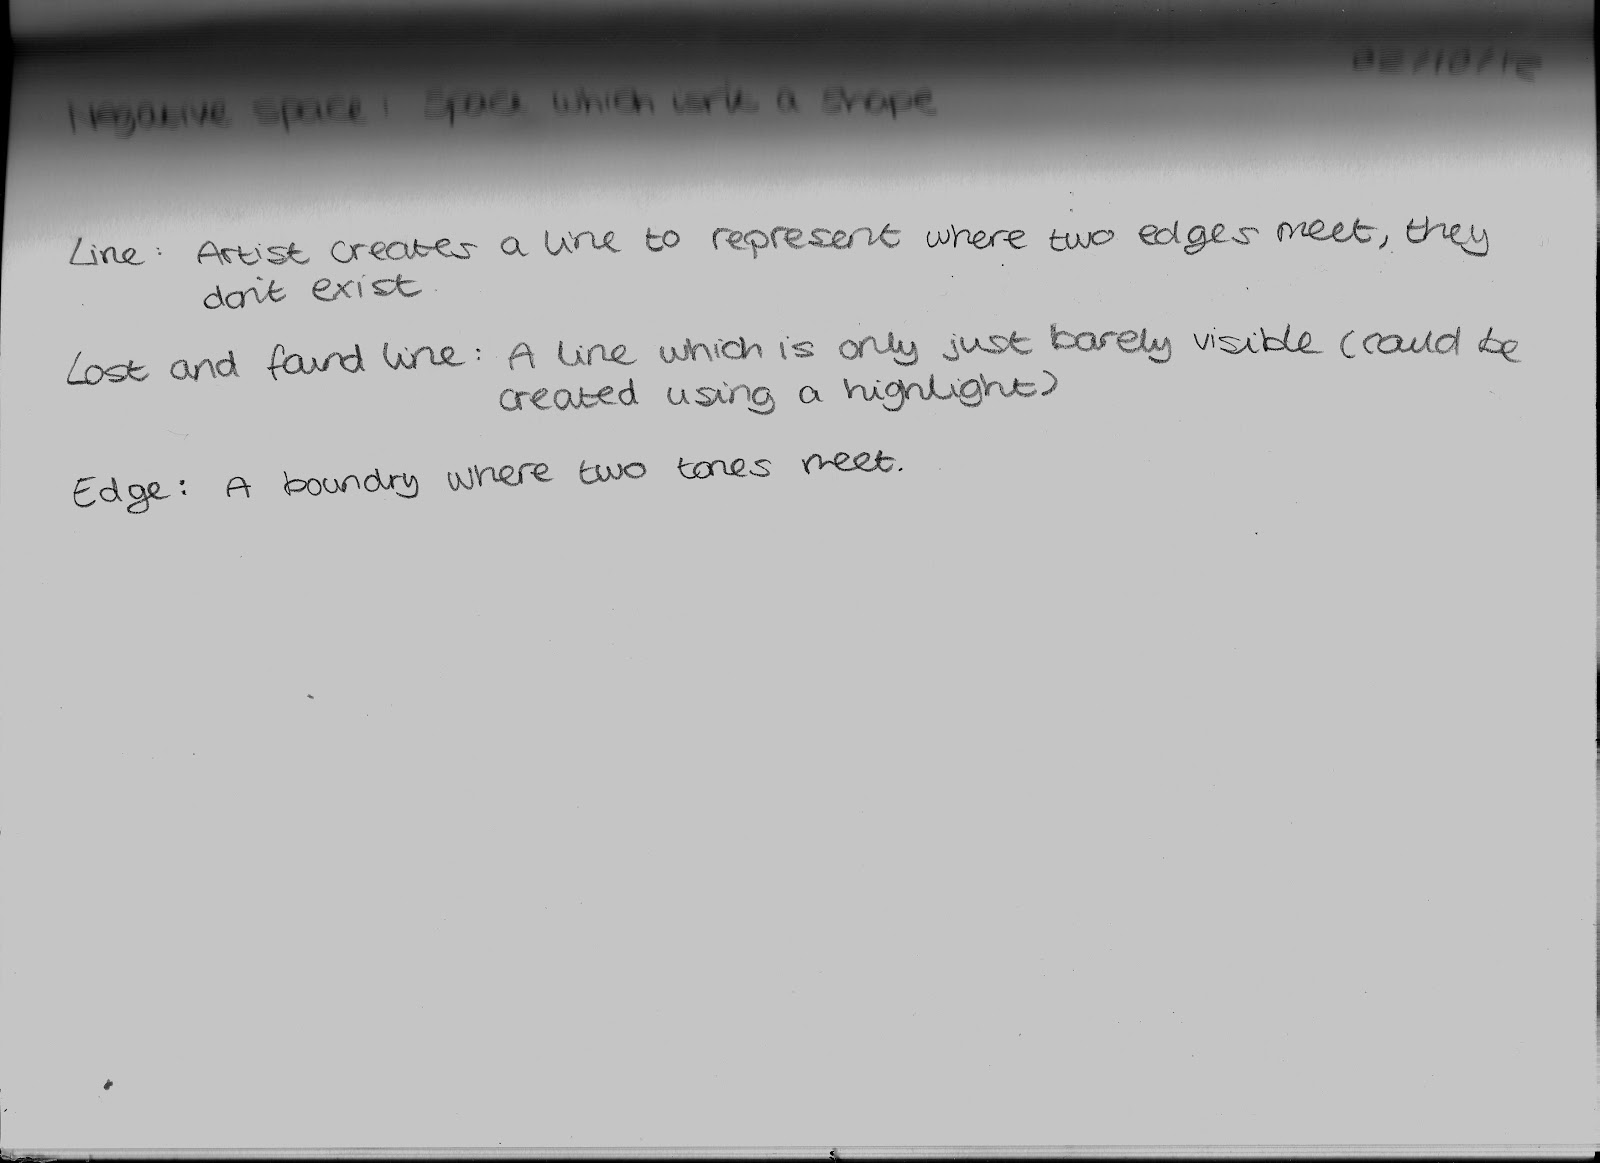 02/10/12
Negative space: Space which isn't a shape
Line: Artist creates a line to represent where two edges meet, they
don't exist.
Lost and found line: A line which is only just barely visible (could be
created using a highlight)
Edge: A boundry where two tones meet.